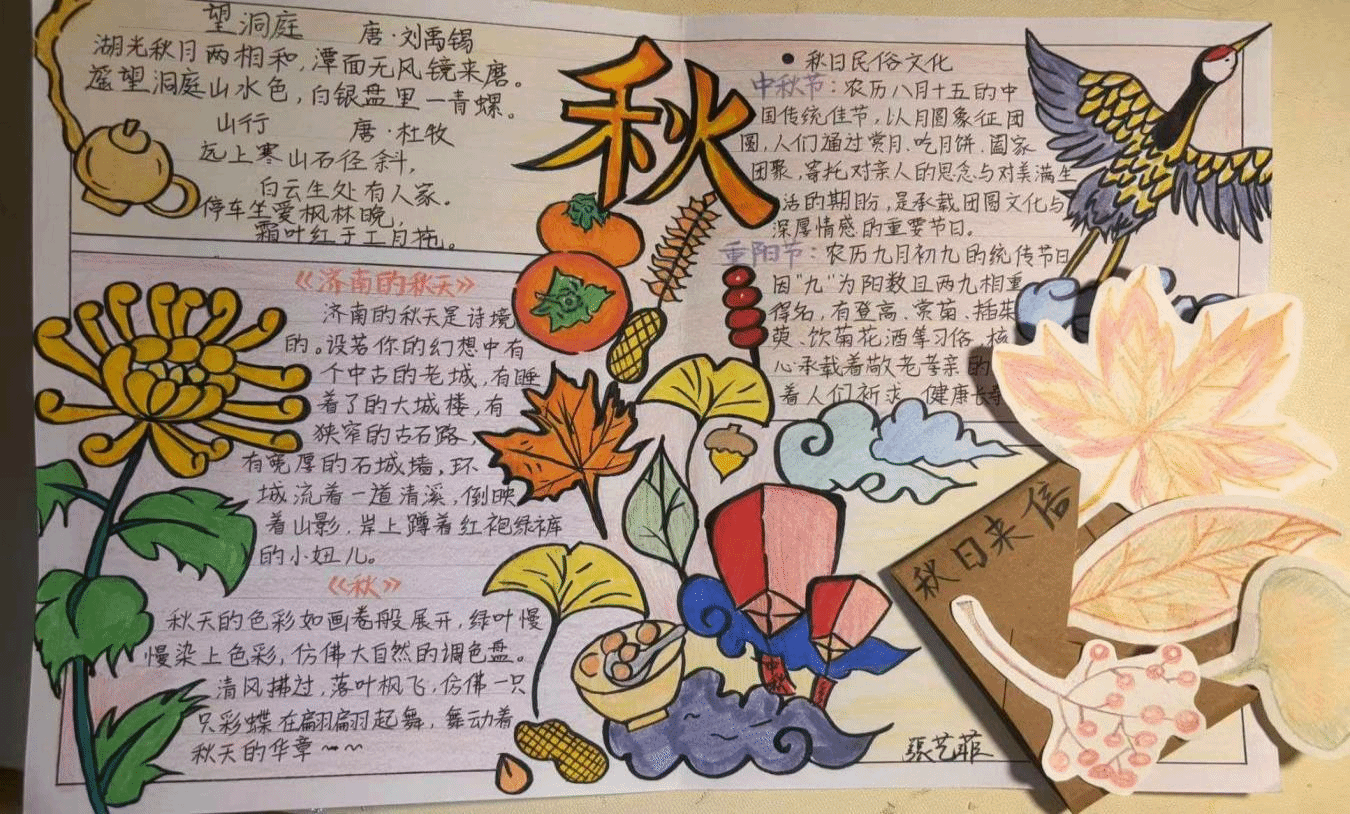 望洞庭 唐·刘禹锡
湖光秋月两相和,潭面无风镜来磨。
遥望洞庭山水色,白银盘里一青螺。
山行 唐·杜牧
远上寒山石径斜,
白云生处有人家。
停车坐爱枫林晚,
霜叶红于二月花。
《济南的秋天》
济南的秋天是诗境
的。设若你的幻想中有
个中古的老城,有睡
着了的大城楼,有
狭窄的古石路,
有宽厚的石城墙,环
城流着一道清溪,倒映
着山影,岸上蹲着红袍绿裤
的小妞儿。
《秋》
秋天的色彩如画卷般展开,绿叶慢
慢染上色彩,仿佛大自然的调色盘。
清风拂过,落叶枫飞,仿佛一只
只彩蝶在翩翩起舞,舞动着
秋天的华章~~
秋
•秋日民俗文化
中秋节:农历八月十五的中
国传统佳节,以月圆象征团
圆,人们通过赏月、吃月饼、阖家
团聚,寄托对亲人的思念与对美满生
活的期盼,是承载团圆文化与
深厚情感的重要节日。
重阳节:农历九月初九的统传节日
因"九"为阳数且两九相重
得名,有登高、赏菊、插茱
萸、饮菊花酒等习俗,核
心承载着敬老孝亲的
着人们祈求 健康长寿
中秋
秋日来信
张艺菲